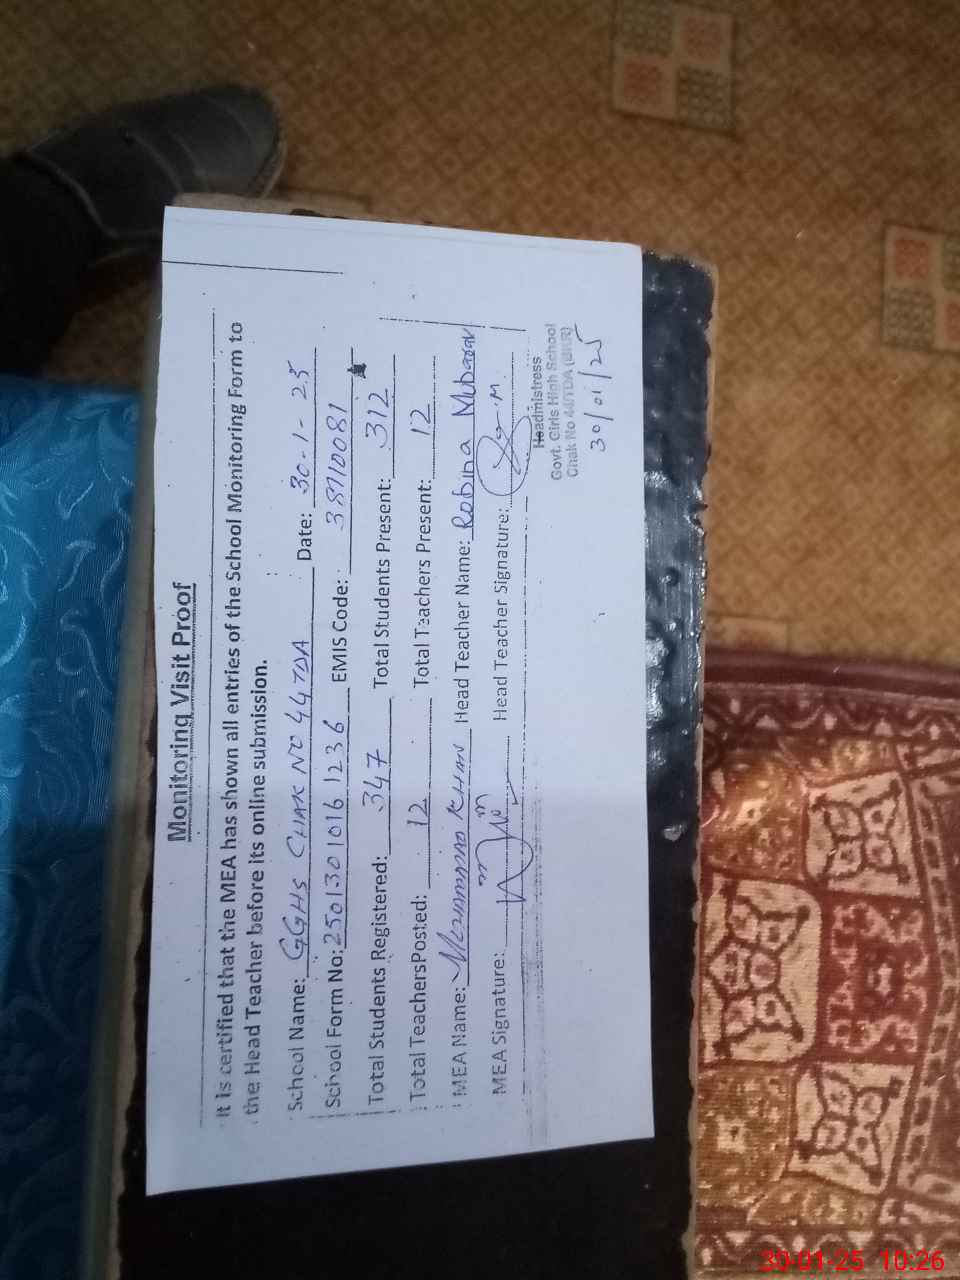 Monitoring Visit Proof
It is certified that the MEA has shown all entries of the School Monitoring Form to
the Head Teacher before its online submission.
School Name: GGHS CHAK NO 44 TDA Date: 30-1-25
School Form No: 2501301016 1236 EMIS Code: 38710081
Total Students Registered: 347 Total Students Present: 312
Total TeachersPosted: 12 Total Teachers Present: 12
MEA Name: Mohammad Khan Head Teacher Name: Robina Mubarak
MEA Signature: Head Teacher Signature:
Headmistress
Govt. Girls High School
Chak No 44/TDA (BKR)
30/01/25
30-01-25 10:26